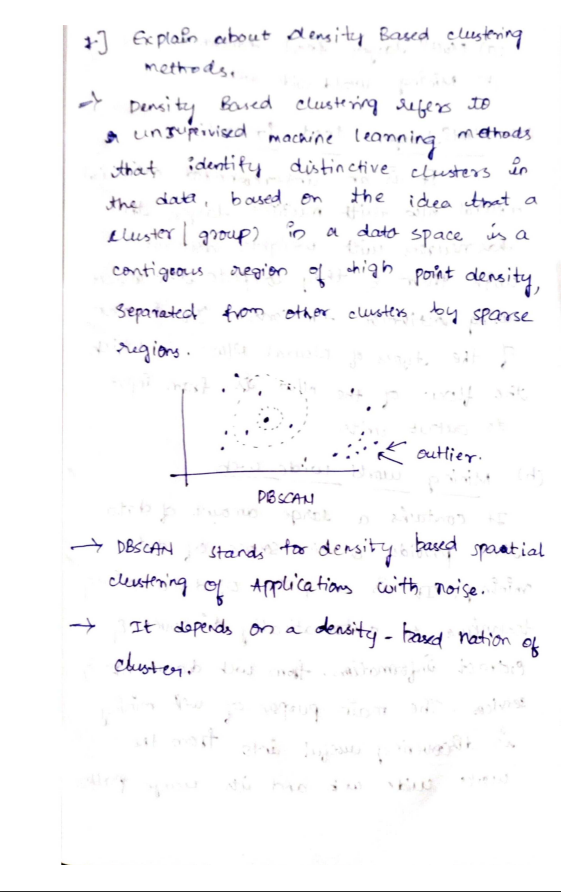 1.] Explain about density Based clustering
methods.
→ Density Based clustering refers to
a unsupervised machine learning methods
that identify distinctive clusters in
the data, based on the idea that a
cluster | group) in a data space is a
contigeous region of high point density,
Separated from other clusters by sparse
regions.
outlier.
DBSCAN
→ DBSCAN, stands for density based spaatial
clustering of Applications with noise.
→ It depends on a density - based nation of
cluster.